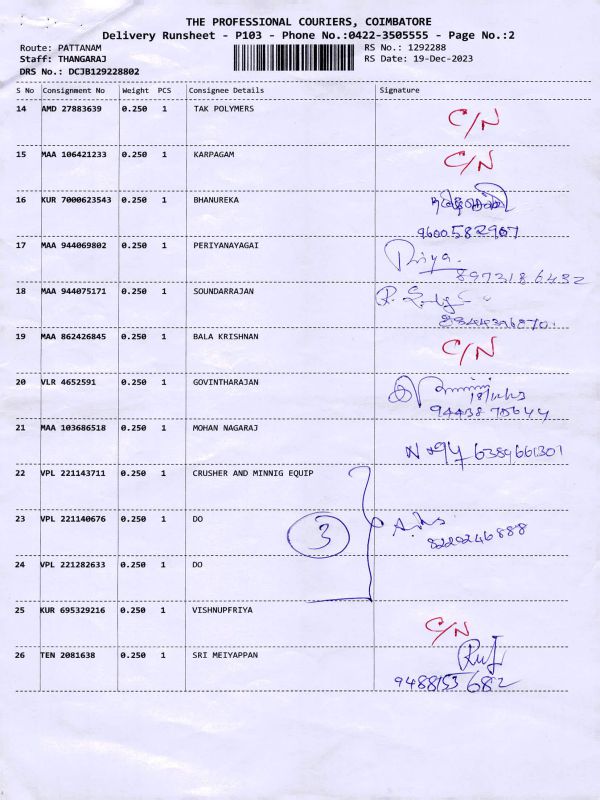 THE PROFESSIONAL COURIERS, COIMBATORE
Delivery Runsheet - P103 - Phone No.:0422-3505555 - Page No.:2
Route: PATTANAM RS No.: 1292288
Staff: THANGARAJ RS Date: 19-Dec-2023
DRS No.: DCJB129228802
S No Consignment No Weight PCS Consignee Details Signature
14 AMD 27883639 0.250 1 TAK POLYMERS C/N
15 MAA 106421233 0.250 1 KARPAGAM C/N
16 KUR 7000623543 0.250 1 BHANUREKA
9600582967
17 MAA 944069802 0.250 1 PERIYANAYAGAI Priya.
8973186432
18 MAA 944075171 0.250 1 SOUNDARRAJAN
8844396870
19 MAA 862426845 0.250 1 BALA KRISHNAN C/N
20 VLR 4652591 0.250 1 GOVINTHARAJAN
94438 75644
21 MAA 103686518 0.250 1 MOHAN NAGARAJ
6389661301
22 VPL 221143711 0.250 1 CRUSHER AND MINNIG EQUIP
23 VPL 221140676 0.250 1 DO 3
8220246888
24 VPL 221282633 0.250 1 DO
25 KUR 695329216 0.250 1 VISHNUPFRIYA C/N
26 TEN 2081638 0.250 1 SRI MEIYAPPAN
9488153 682